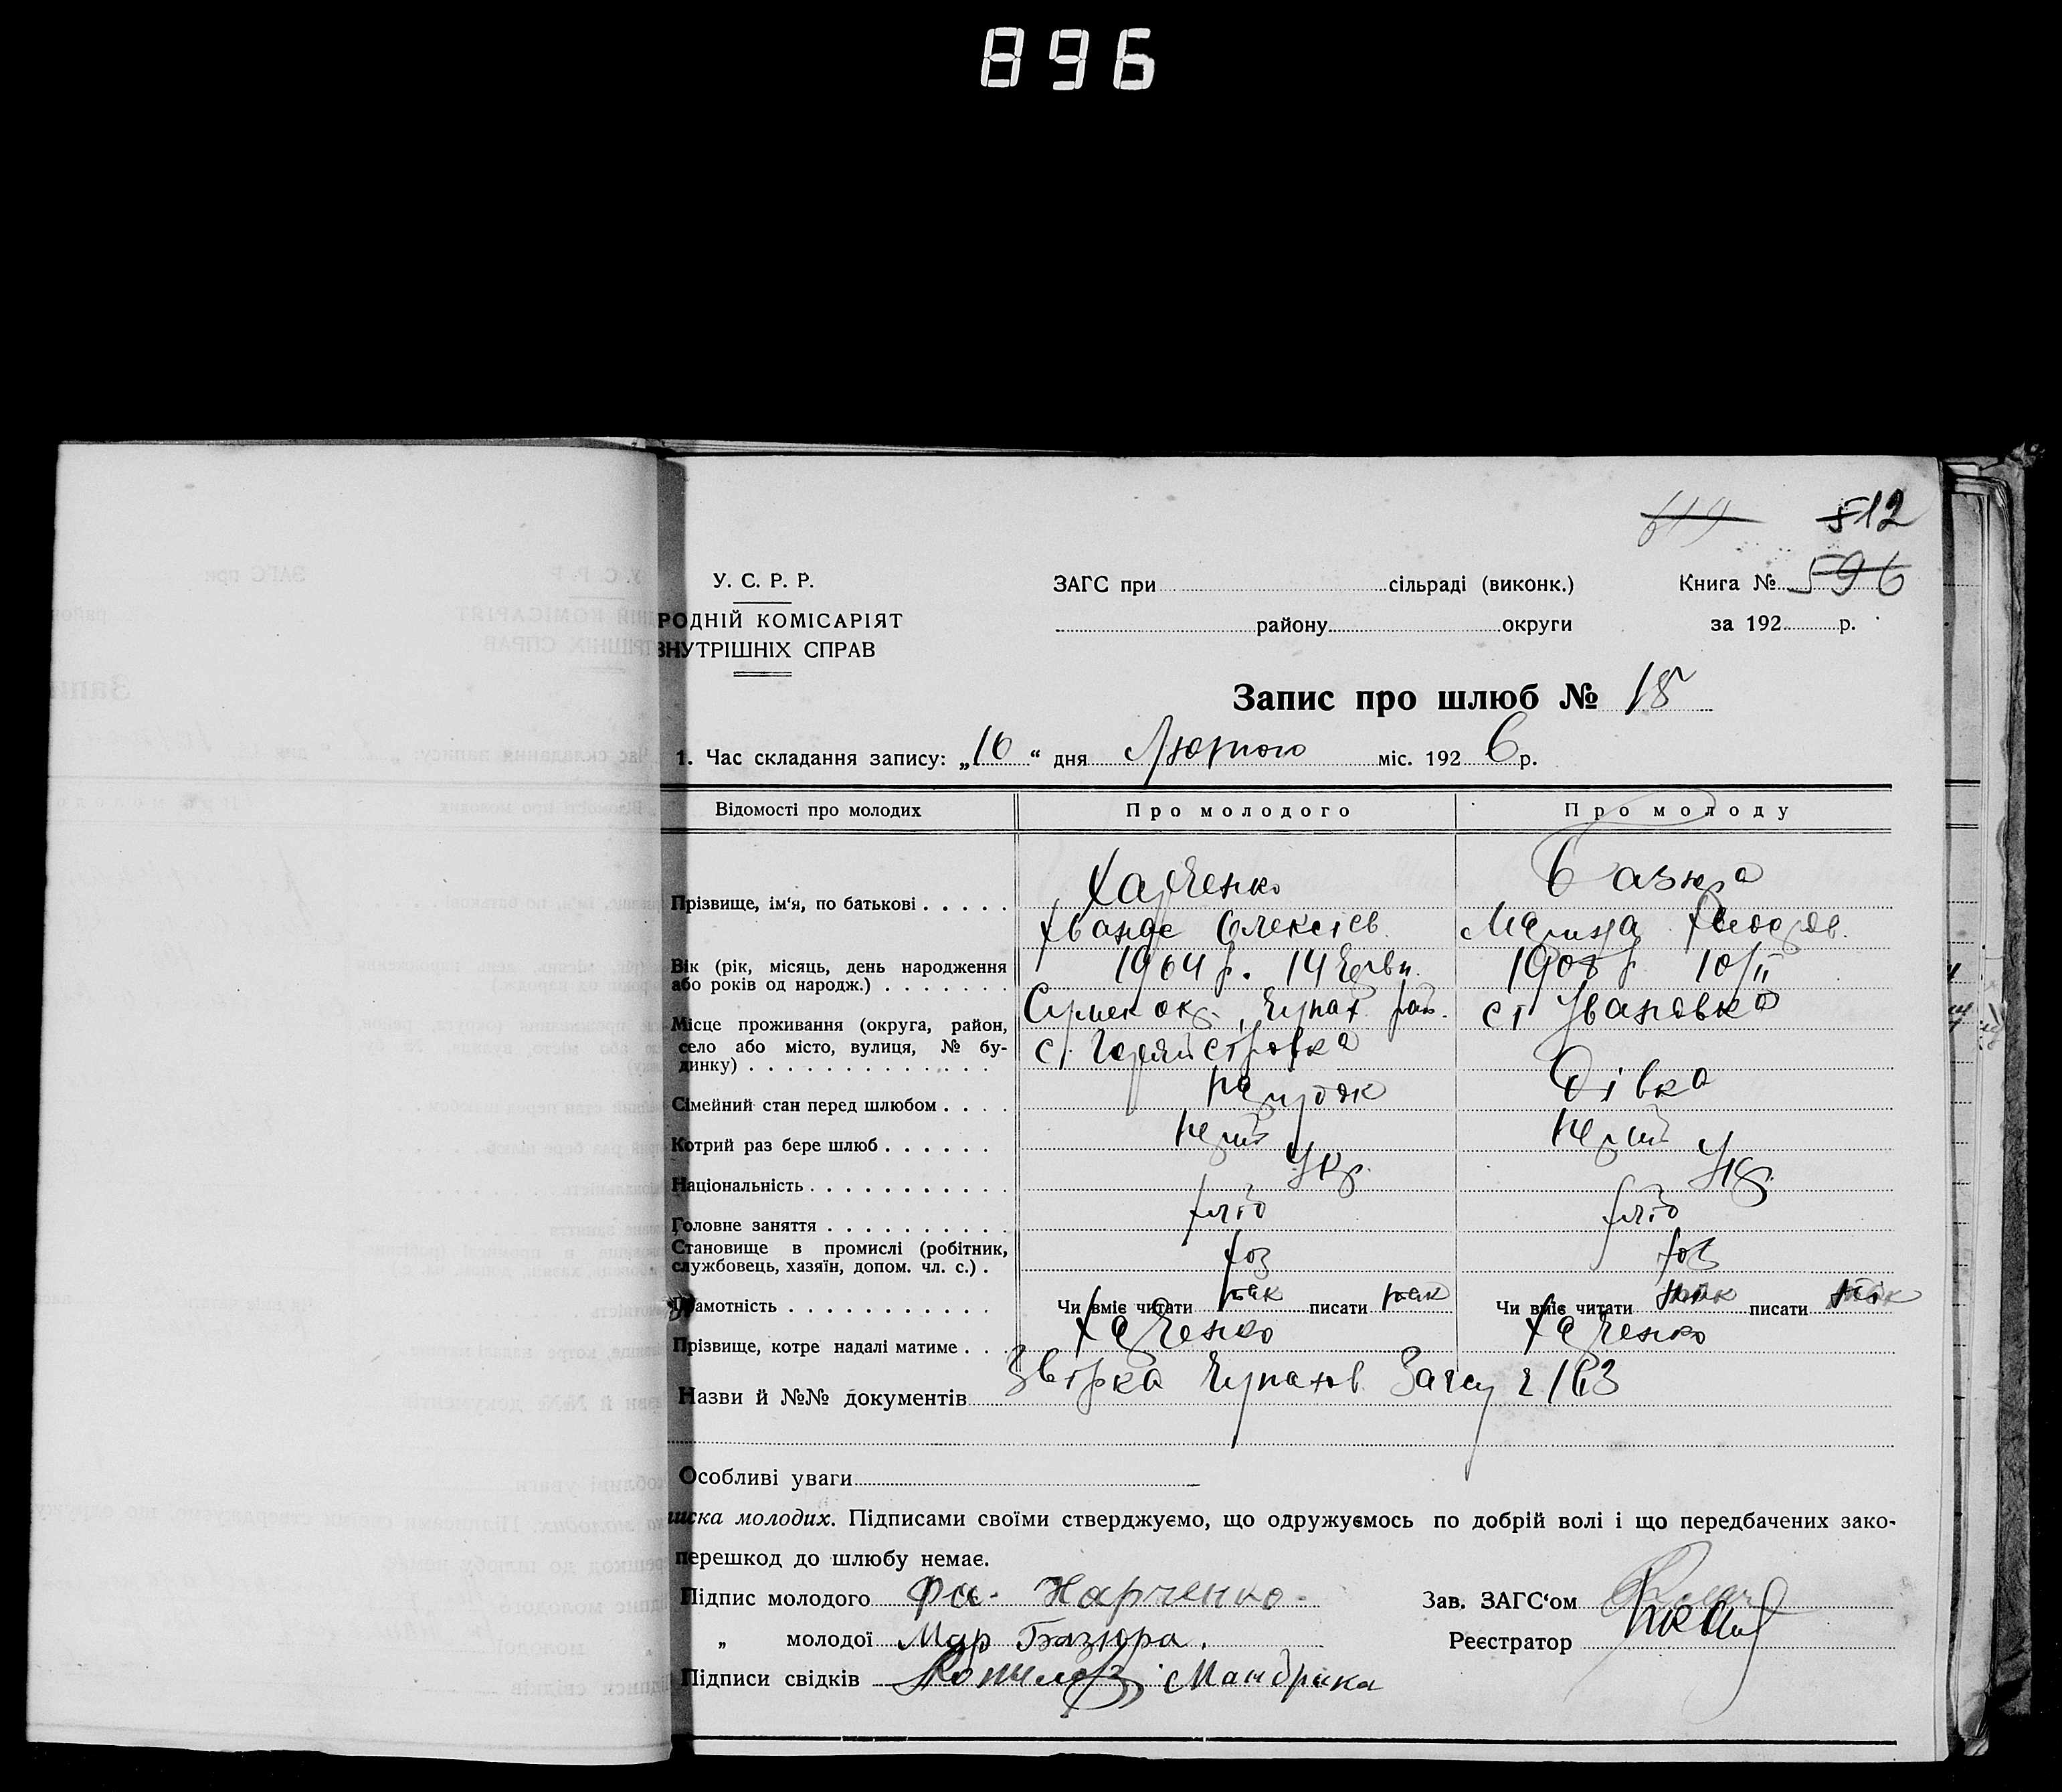 896
512
596
У. С. Р. Р.
ЗАГС при сільраді (виконк.)
Книга № 
РОДНІЙ КОМІСАРІЯТ
району округи
за 192 р.
ВНУТРІШНІХ СПРАВ
Запис про шлюб № 18
1. Час складання запису: „16“ дня Лютого міс. 1926 р.
Відомості про молодих
Про молодого
Про молоду
Прізвище, ім‘я, по батькові
Харченко
Базюра
Олексієв.
Мариya
Вік (рік, місяць, день народження
або років од народж.)
1904 р. 14 Червн.
1908 р 10/II
Місце проживання (округа, район,
село або місто, вулиця, № бу-
динку)
Сумск окр., Чупах рай.
с.
ст Івановка
Сімейний стан перед шлюбом
парубок
Дівка
Котрий раз бере шлюб
перший
перший
Національність
Укр.
Укр.
Головне заняття
хліб
хліб
Становище в промислі (робітник,
службовець, хазяїн, допом. чл. с.)
хоз
хоз
Грамотність
Чи вміє читати так писати так
Чи вміє читати писати
Прізвище, котре надалі матиме
Харченко
Харченко
Назви й №№ документів Звірка Чупахов Загсу
Особливі уваги
иска молодих. Підписами своїми стверджуємо, що одружуємось по добрій волі і що передбачених зако-
перешкод до шлюбу немає.
Підпис молодого Харченко
Зав. ЗАГС‘ом
„ молодої Мар Базюра.
Реєстратор
Підписи свідків Мандрика